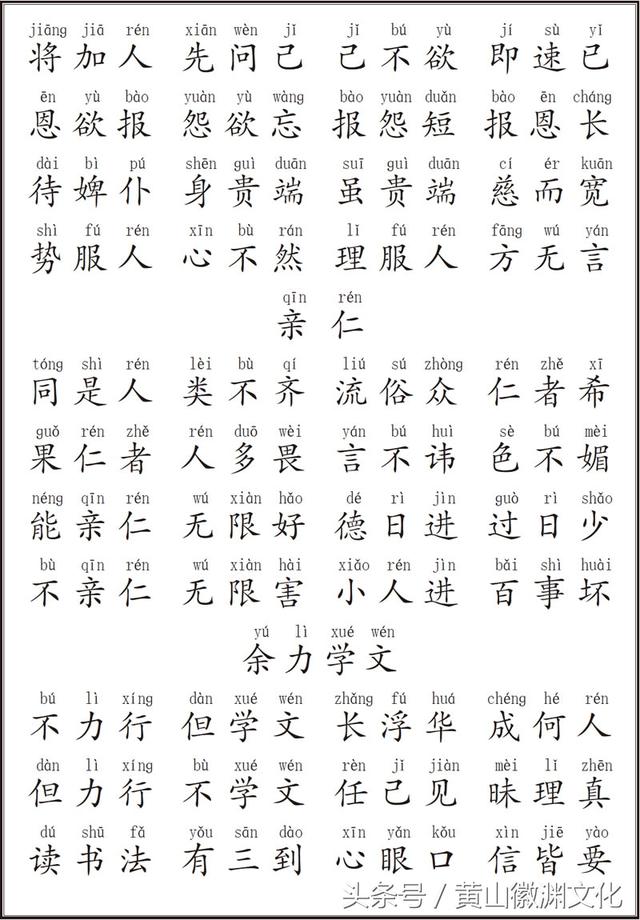 jiāng jiā rén xiān wèn jǐ jǐ bú yù jí sù yǐ
将加人 先问己 己不欲 即速已
ēn yù bào yuàn yù wàng bào yuàn duǎn bào ēn cháng
恩欲报 怨欲忘 报怨短 报恩长
dài bì pú shēn guì duān suī guì duān cí ér kuān
待婢仆 身贵端 虽贵端 慈而宽
shì fú rén xīn bù rán lǐ fú rén fāng wú yán
势服人 心不然 理服人 方无言
qīn rén
亲仁
tóng shì rén lèi bù qí liú sú zhòng rén zhě xī
同是人 类不齐 流俗众 仁者希
guǒ rén zhě rén duō wèi yán bú huì sè bú mèi
果仁者 人多畏 言不讳 色不媚
néng qīn rén wú xiàn hǎo dé rì jìn guò rì shǎo
能亲仁 无限好 德日进 过日少
bù qīn rén wú xiàn hài xiǎo rén jìn bǎi shì huài
不亲仁 无限害 小人进 百事坏
yú lì xué wén
余力学文
bú lì xíng dàn xué wén zhǎng fú huá chéng hé rén
不力行 但学文 长浮华 成何人
dàn lì xíng bù xué wén rèn jǐ jiàn mèi lǐ zhēn
但力行 不学文 任己见 昧理真
dú shū fǎ yǒu sān dào xīn yǎn kǒu xìn jiē yào
读书法 有三到 心眼口 信皆要
头条号 / 黄山徽渊文化